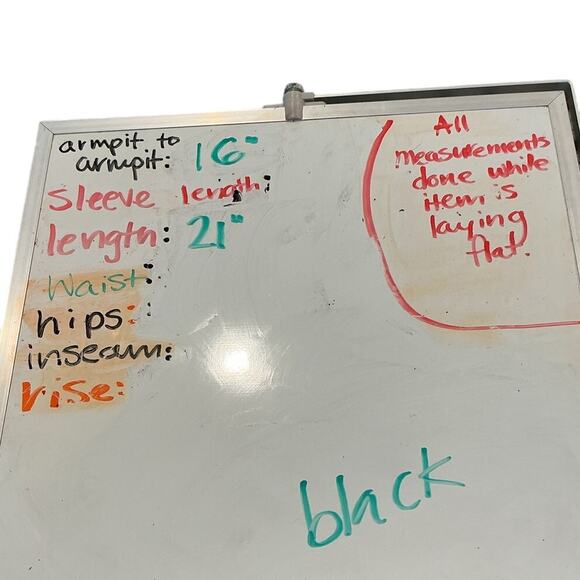 armpit to
armpit: 16"
Sleeve length:
length: 21"
Waist:
hips:
inseam:
rise:
All
measurements
done while
item is
laying
flat.
black